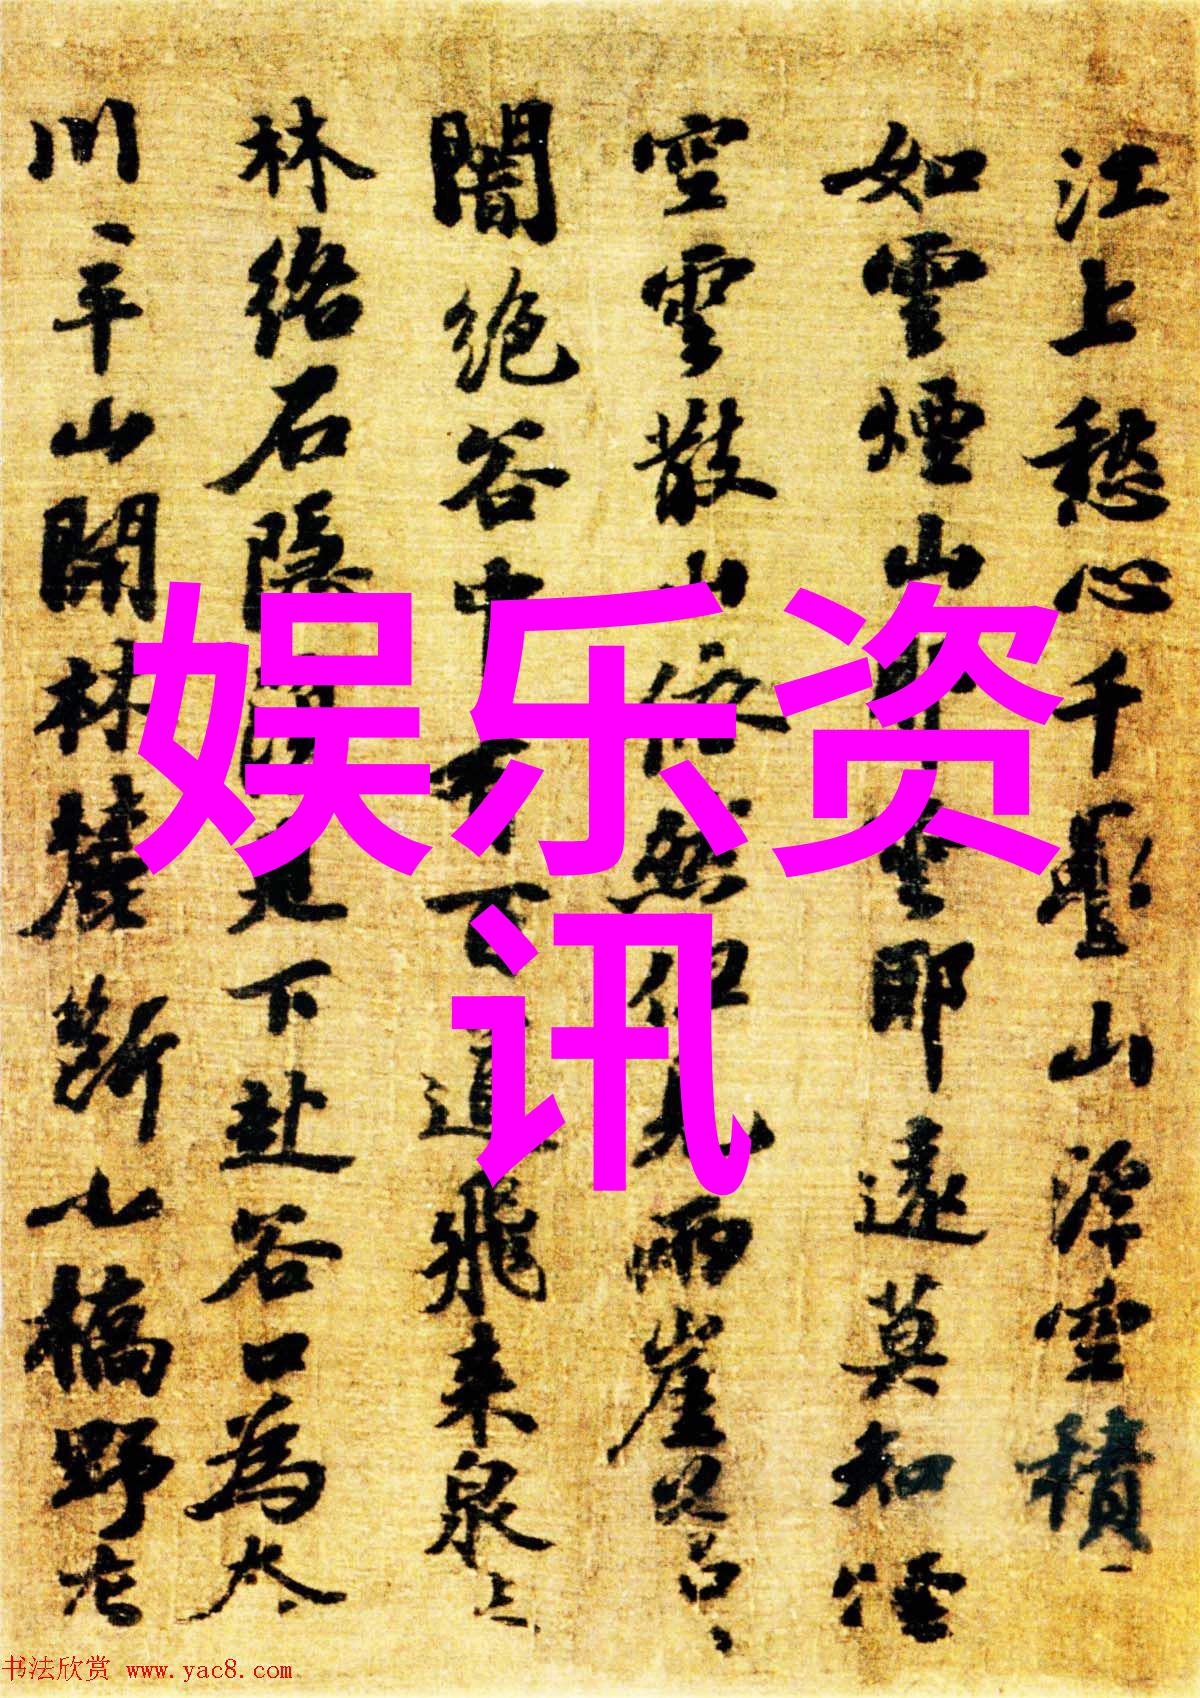 江上愁心千疊山浮空積
如雲煙山耶雲耶遠莫知煙
空雲散山依然但見兩崖蒼
闇絕谷中有百道飛來泉
林絡石隱復見下赴谷口為
川平山開林麓斷小橋野店
娱乐资
讯
书法欣赏 www.yac8.com